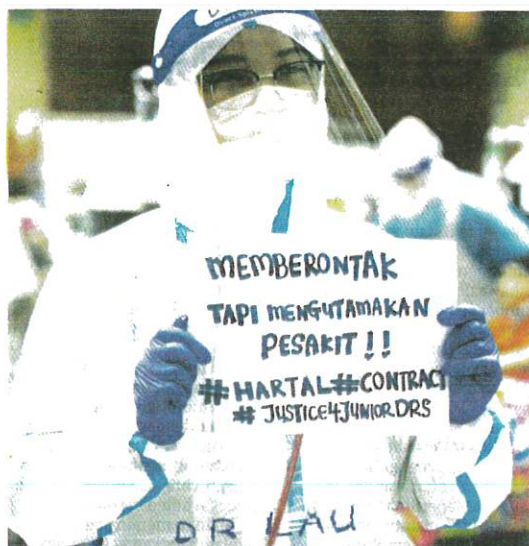 MEMBERONTAK
TAPI MENGUTAMAKAN
PESAKIT !!
#HARTAL#CONTRACT
# JUSTICE4JUNIORDRS
DR LAU